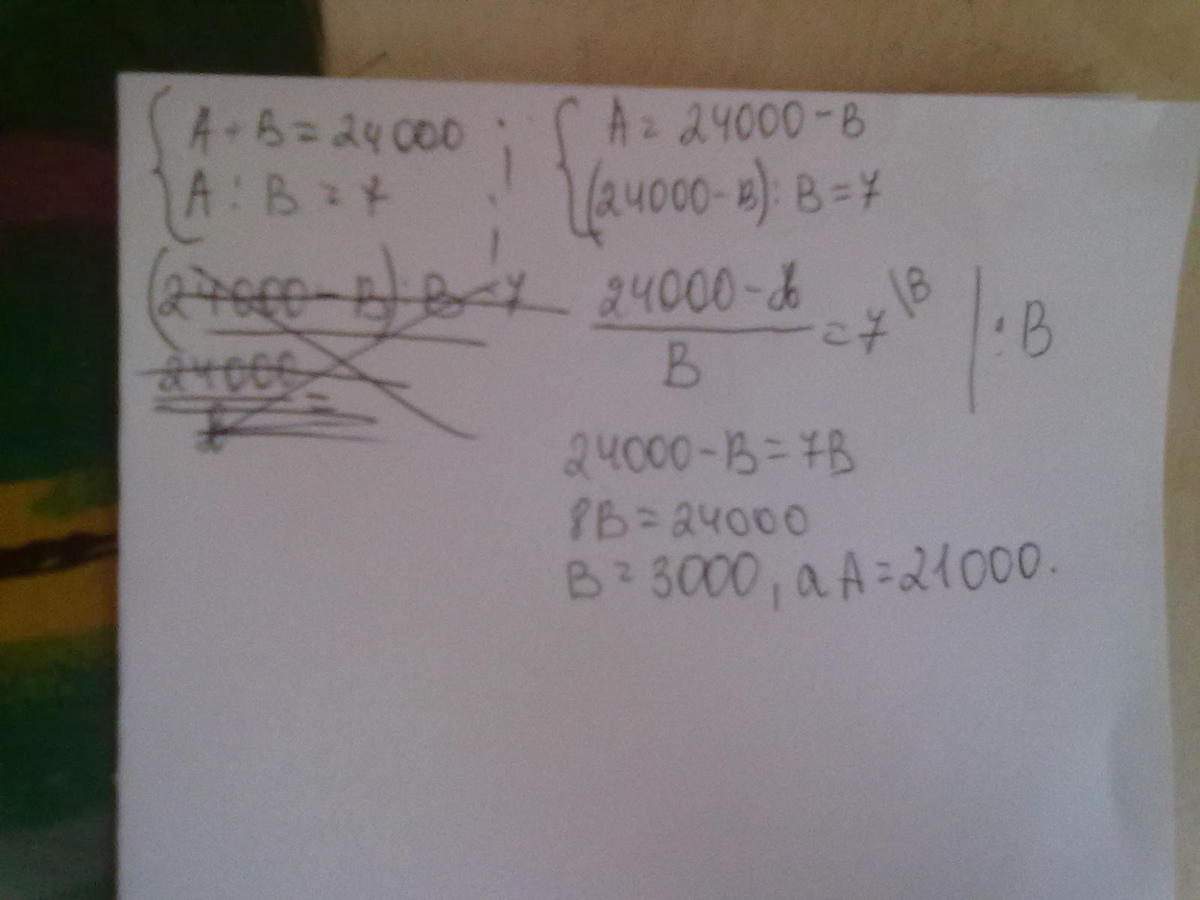 A + B = 24000
A : B = 7
A = 24000 - B
(24000 - B) : B = 7
(24000 - B) : B = 7
24000 =
24000 - B
B
= 7 \B | : B
24000 - B = 7B
8B = 24000
B = 3000, а A = 21000.